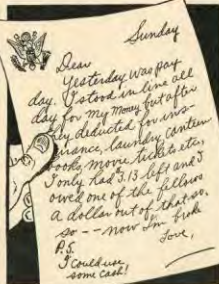 Sunday
Dear
Yesterday was pay
day. I stood in line all
day for my money but after
they deducted for ins-
urance, laundry, canteen
books, movie tickets etc,
I only had 3.13 left and I
owed one of the fellows
a dollar out of that so,
so -- now I'm broke
Love,
P.S.
I could use
some cash!